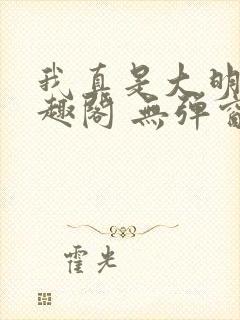 我真是大明
趣阁 無弹窗
霍光